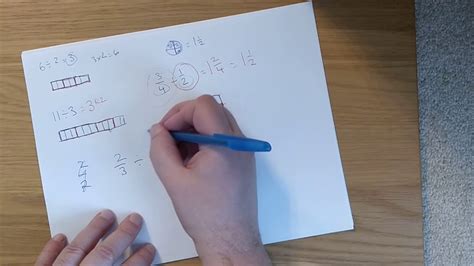 6 ÷ 2 = 3
3 x 2 = 6
= 1 1/2
3/4 ÷ 1/2 = 1 2/4 = 1 1/2
11 ÷ 3 = 3
2
4
2
2/3 ÷